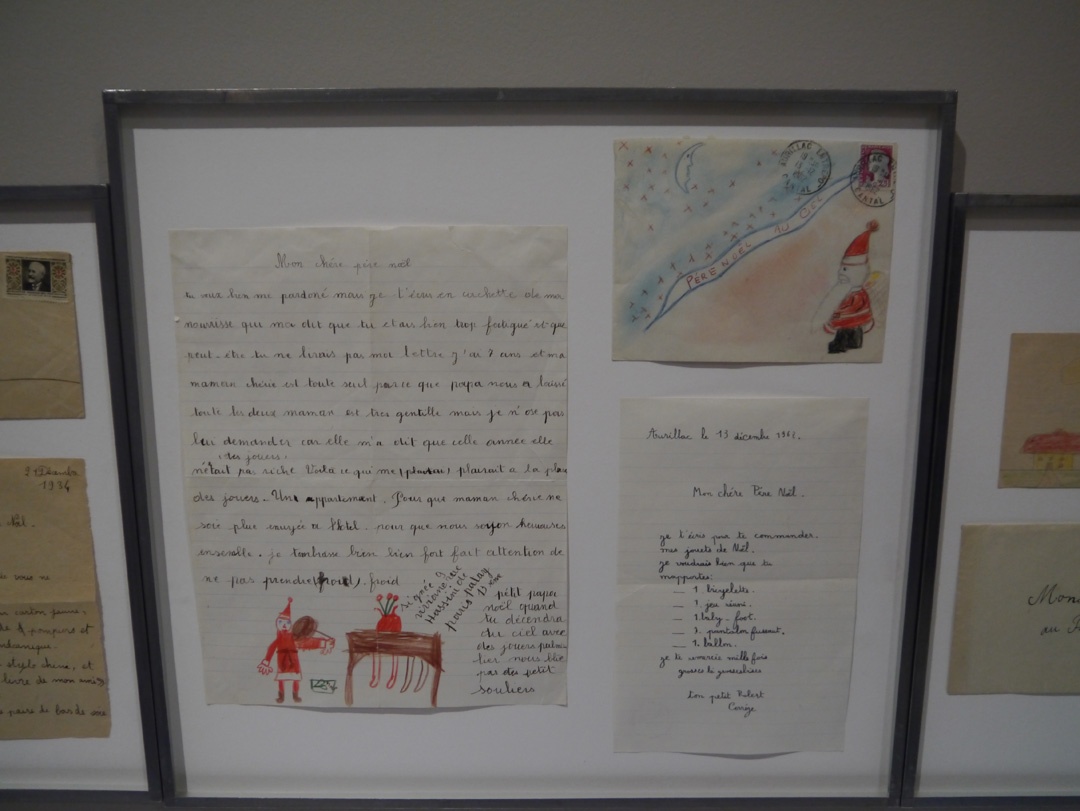 Mon chère père noël
tu veux bien me pardoné mais je t'écris en cachette de ma
nourrisse qui ma dit que tu étais bien trop fatigué et que
peut-être tu ne lirais pas mat lettre j'ai 8 ans et ma
maman chérie est toute seul parce que papa nous a laissé
toute les deux maman est très gentille mais je n'ose pas
leu demander car elle m'a dit que cette année elle
des jouers
n'était pas riche Voila ce qui me plairait a la place
des jouers. Un appartement. Pour que maman chérie ne
soie plue à l'hotel. pour que nous soyon heureuses
ensemble. je t'embrasse bien bien fort fait attention de
ne pas prendre froid
signée
Hassini
paris
petit papa
noël quand
tu décendra
du ciel avec
des jouers par mi-
lier nous blie
pas des petit
souliers
AURILLAC
PÈRE NOËL AU CIEL
AURILLAC
CANTAL
Aurillac le 13 décembre 1962.
Mon chère Père Noël.
je t'écris pour te commander.
mes jouets de Noël.
je voudrais bien que tu
m'apportes:
— 1. bicyclette.
— 1. jeu
— 1. baby-foot.
— 1. pantalon fuseau.
— 1. ballon.
je te remercie mille fois
Ton petit Robert
2 Décembre
1934
Noël.
vous
un carton jaune,
pompiers et
mécanique.
stylo
livre de mon
paire de bas de
Mons
au P